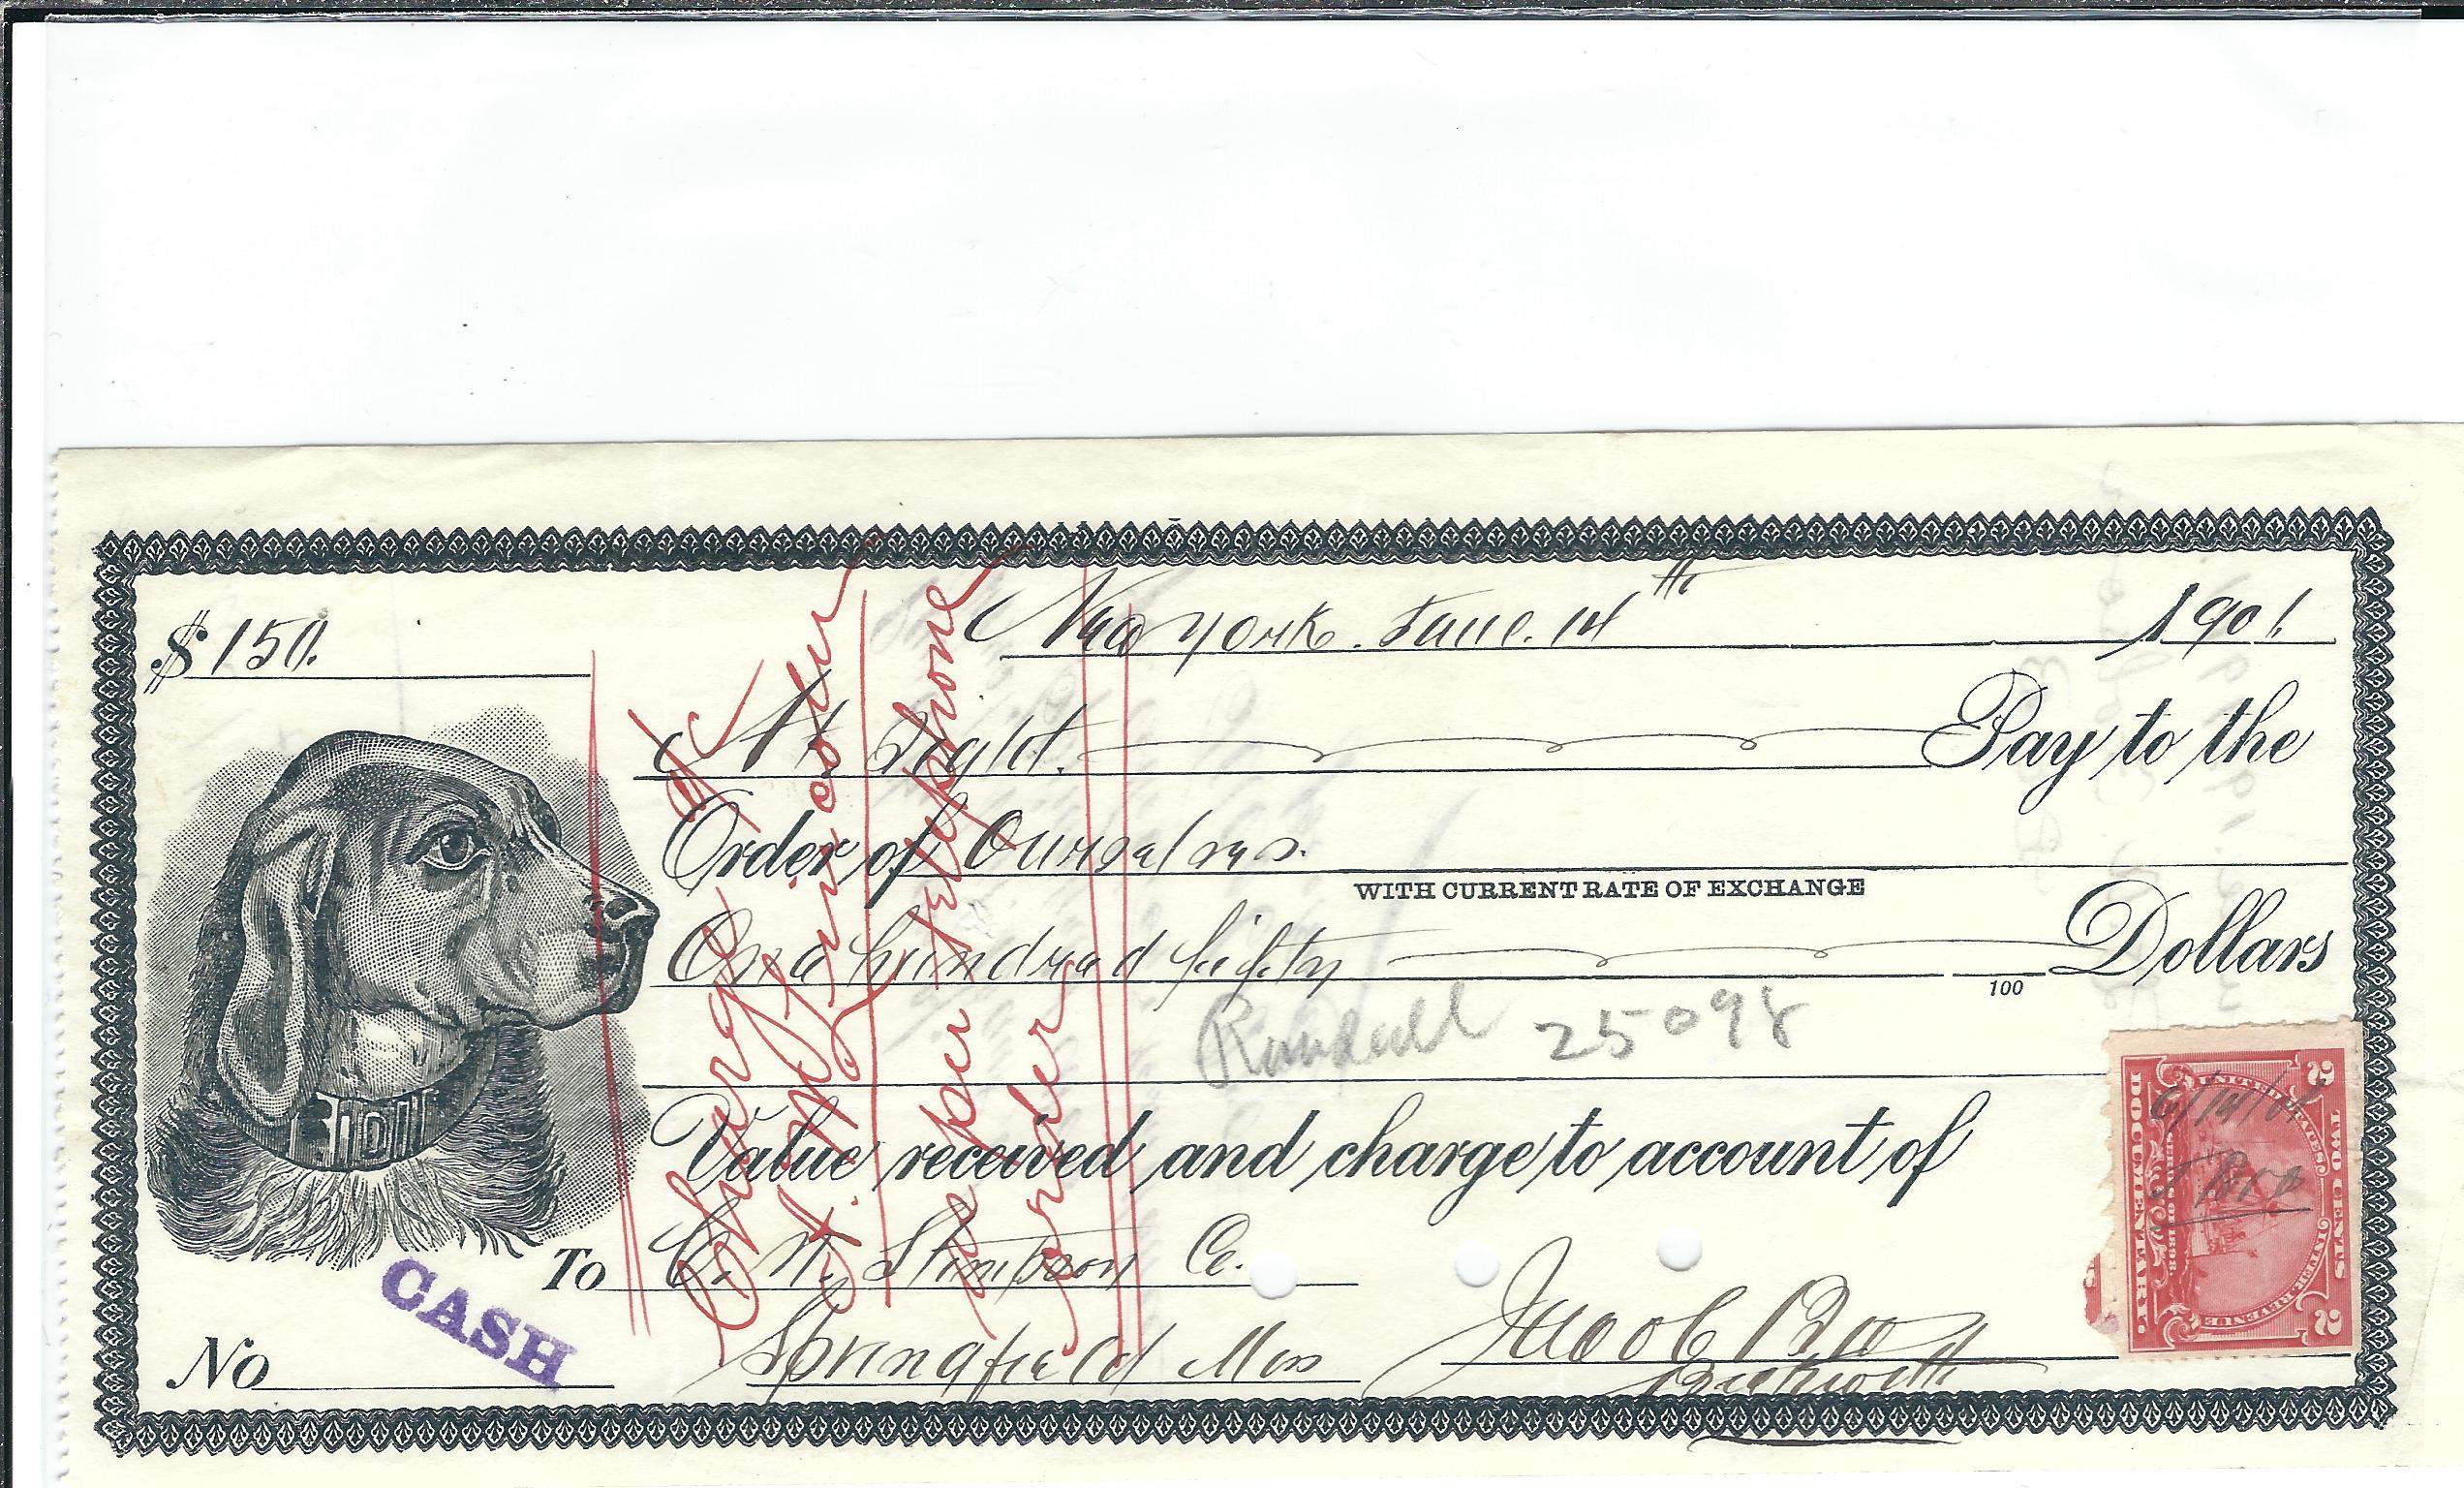 $ 150.
New York. June. 14th 1901.
At Sight. Pay to the
Order of Ourselves.
WITH CURRENT RATE OF EXCHANGE
One hundred fifty 100 Dollars
25098
Value received and charge to account of
To C. W. Stimpson Co.
Springfield Mass
Jacob Bro
Beckwith
No
CASH
Charge
as per telephone
order
UNITED STATES
TWO CENTS
INTER. REVENUE
SERIES OF 1898.
DOCUMENTARY.
2
2
6/14/01
J Bro